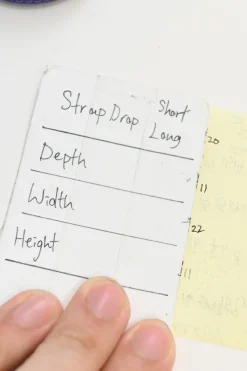 Strap Drop
Short
Long
20
Depth
11
Width
22
Height
11